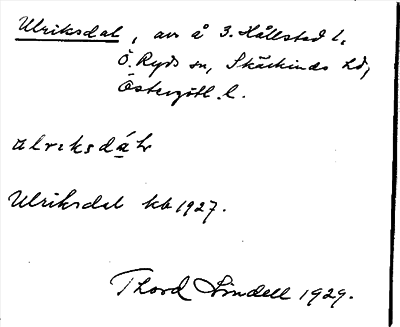 Ulriksdal, av å 3. Hållstad l.
Ö. Ryds sn, Skärkinds hd,
Östergötl. l.
ulriksdál
Ulriksdal kb 1927.
Thord Lindell 1929.